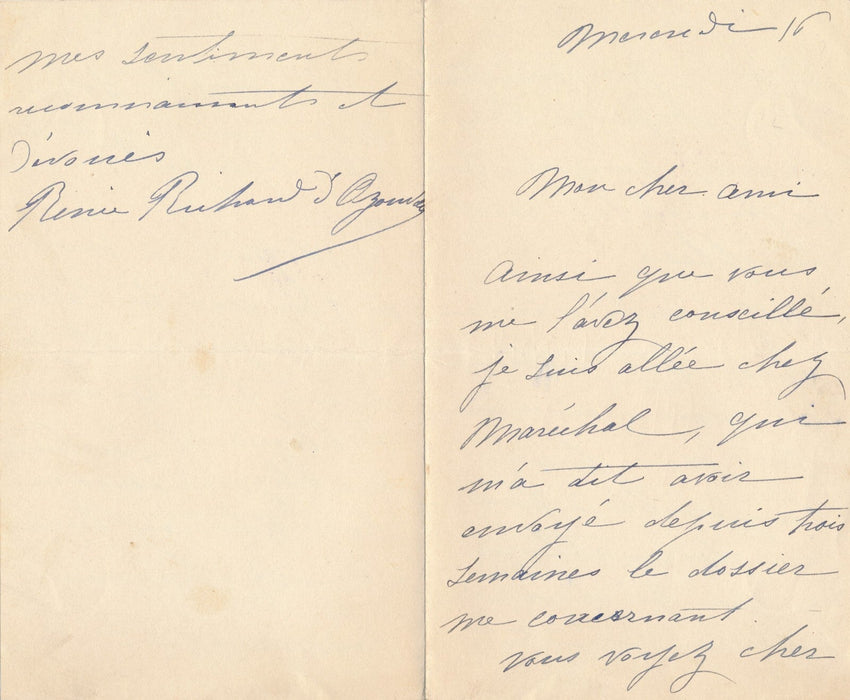 Mercredi 16
Mon cher ami
Ainsi que vous
me l'avez conseillé,
je suis allée chez
Maréchal, qui
m'a dit avoir
envoyé depuis trois
semaines le dossier
me concernant.
Vous voyez cher
mes sentiments
reconnaissants et
dévoués
Renée Richard d'